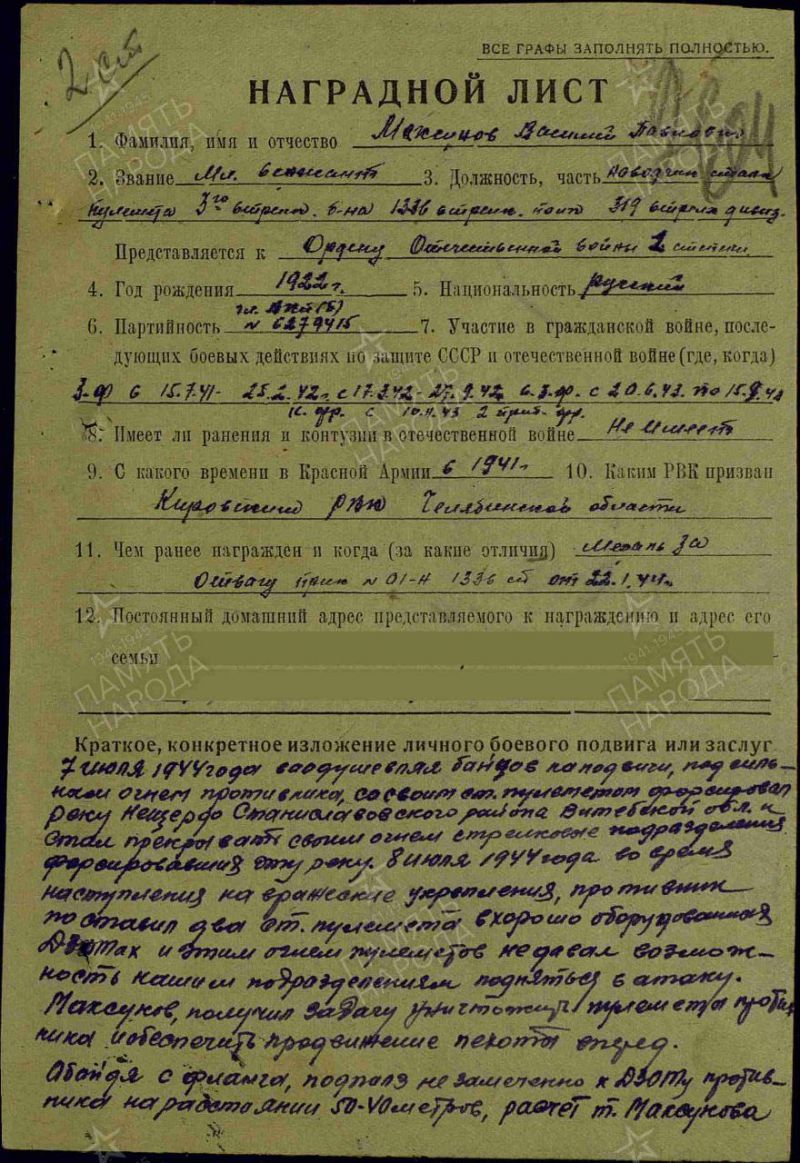 2 ст
ВСЕ ГРАФЫ ЗАПОЛНЯТЬ ПОЛНОСТЬЮ.
НАГРАДНОЙ ЛИСТ
1. Фамилия, имя и отчество Максунов Василий Павлович
2. Звание Мл. сержант 3. Должность, часть наводчик станк
пулемета 3го стрелк. б-на 1336 стрелк. полк 319 стрелк дивиз.
Представляется к Ордену Отечественной войны 2 степени
4. Год рождения 1922 г. 5. Национальность русский
6. Партийность чл. ВКП(б) 7. Участие в гражданской войне, после-
N 6279415
дующих боевых действиях по защите СССР и отечественной войне (где, когда)
З. ф с 15.7.41 - 25.2.42 г. с 17.3.42 - 27.9.42 С.З.ф. с 20.6.43 по 15.9.43
с 10.11.43 2 приб. фр.
8. Имеет ли ранения и контузии в отечественной войне Не имеет
9. С какого времени в Красной Армии с 1941 г 10. Каким РВК призван
Кировским РВК Челябинской области
11. Чем ранее награжден и когда (за какие отличия) Медаль За
Отвагу прик N 01-Н 1336 сп от 22.1.44 г.
12. Постоянный домашний адрес представляемого к награждению и адрес его
семьи
Краткое, конкретное изложение личного боевого подвига или заслуг
7 июля 1944 года воодушевляя бойцов на подвиги, под силь-
ным огнем противника, со своим ст. пулеметом форсировал
реку Нещердо Станиславовского района Витебской обл. и
стал прекрывать своим огнем стрелковые подразделения
форсировавшия эту реку. 8 июля 1944 года во время
наступления на вражеские укрепления, противник
поставил два ст. пулемета в хорошо оборудованная
ДЗОТах и этим огнем пулеметов не давал возмож-
ность нашим подразделениям подняться в атаку.
Максунов, получил задачу уничтожить пулемета проти-
ника и обеспечить продвижение пехоты вперед.
Обойдя с фланга, подполз не замеченно к ДЗОТу против-
ника на растоянии 50-40 метров, расчет т. Максунова
ПАМЯТЬ
НАРОДА
1941-1945